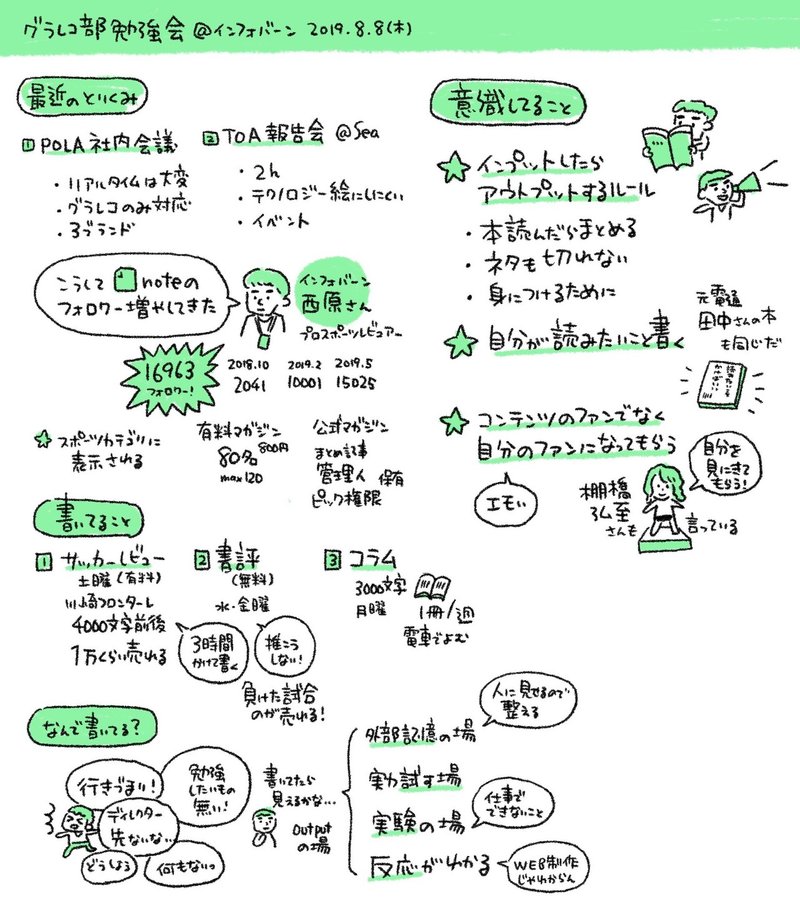 グラレコ部勉強会 @インフォバーン 2019.8.8(木)
最近のとりくみ
1 POLA 社内会議
・リアルタイムは大変
・グラレコのみ対応
・3ブランド
2 TOA 報告会 @Sea
・2h
・テクノロジー絵にしにくい
・イベント
こうして noteの
フォロワー増やしてきた
インフォバーン
西原さん
プロスポーツレビュアー
16963
フォロワー!
2018.10
2041
2019.2
10001
2019.5
15025
スポーツカテゴリに
表示される
有料マガジン
80名 800円
max120
公式マガジン
まとめ記事
管理人
ピック権限
保有
書いてること
1 サッカーレビュー
土曜(有料)
川崎フロンターレ
4000文字前後
1万くらい売れる
3時間
かけて書く
2 書評
(無料)
水・金曜
推こう
しない!
負けた試合
のが売れる!
3 コラム
3000文字
月曜
1冊/週
電車でよむ
なんで書いてる?
行きづまり!
勉強
したいもの
無い!
ディレクター
先ないな…
どうしよう
何もないっ
書いてたら
見えるかな…
Output
の場
外部記憶の場
人に見せるので
整える
実力試す場
実験の場
仕事で
できないこと
反応がわかる
WEB制作
じゃわからん
意識してること
インプットしたら
アウトプットするルール
・本読んだらまとめる
・ネタも切れない
・身につけるために
自分が読みたいこと書く
元電通
田中さんの本
も同じだ
コンテンツのファンでなく
自分のファンになってもらう
エモい
棚橋
弘至
さんも
言っている
自分を
見にきて
もらう!